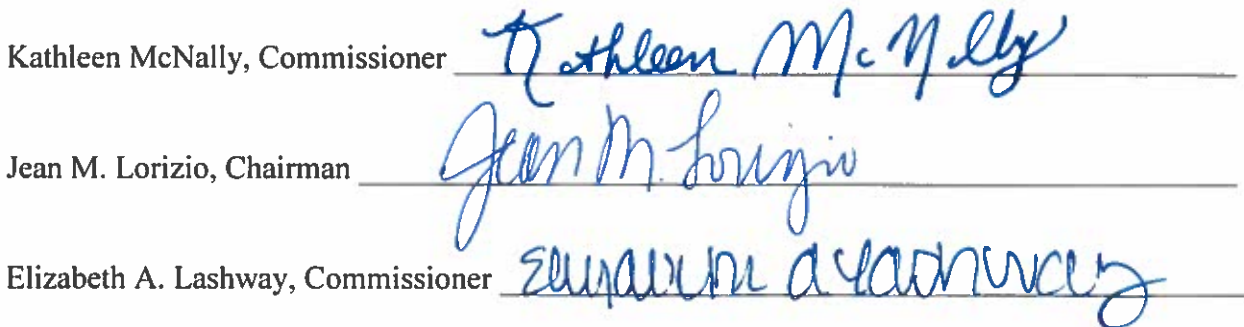 Kathleen McNally, Commissioner Kathleen McNally
Jean M. Lorizio, Chairman Jean M. Lorizio
Elizabeth A. Lashway, Commissioner Elizabeth A Lashway